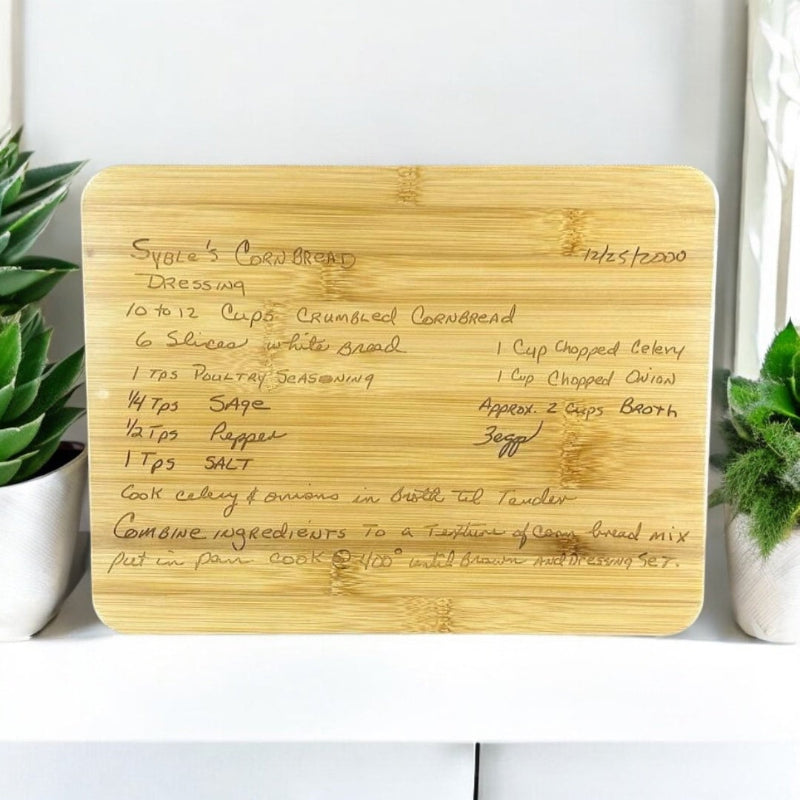 Syble's CornBread 12/25/2000
Dressing
10 to 12 Cups Crumbled CornBread
6 Slices white Bread
1 Cup Chopped Celery
1 Tps Poultry Seasoning
1 Cup Chopped Onion
1/4 Tps Sage
Approx. 2 Cups Broth
1/2 Tps Pepper
3 egg
1 Tps Salt
Cook celery & onions in Broth til Tender
Combine ingredients To a Texture of corn bread mix
put in pan cook @ 400° until Brown and Dressing Set.